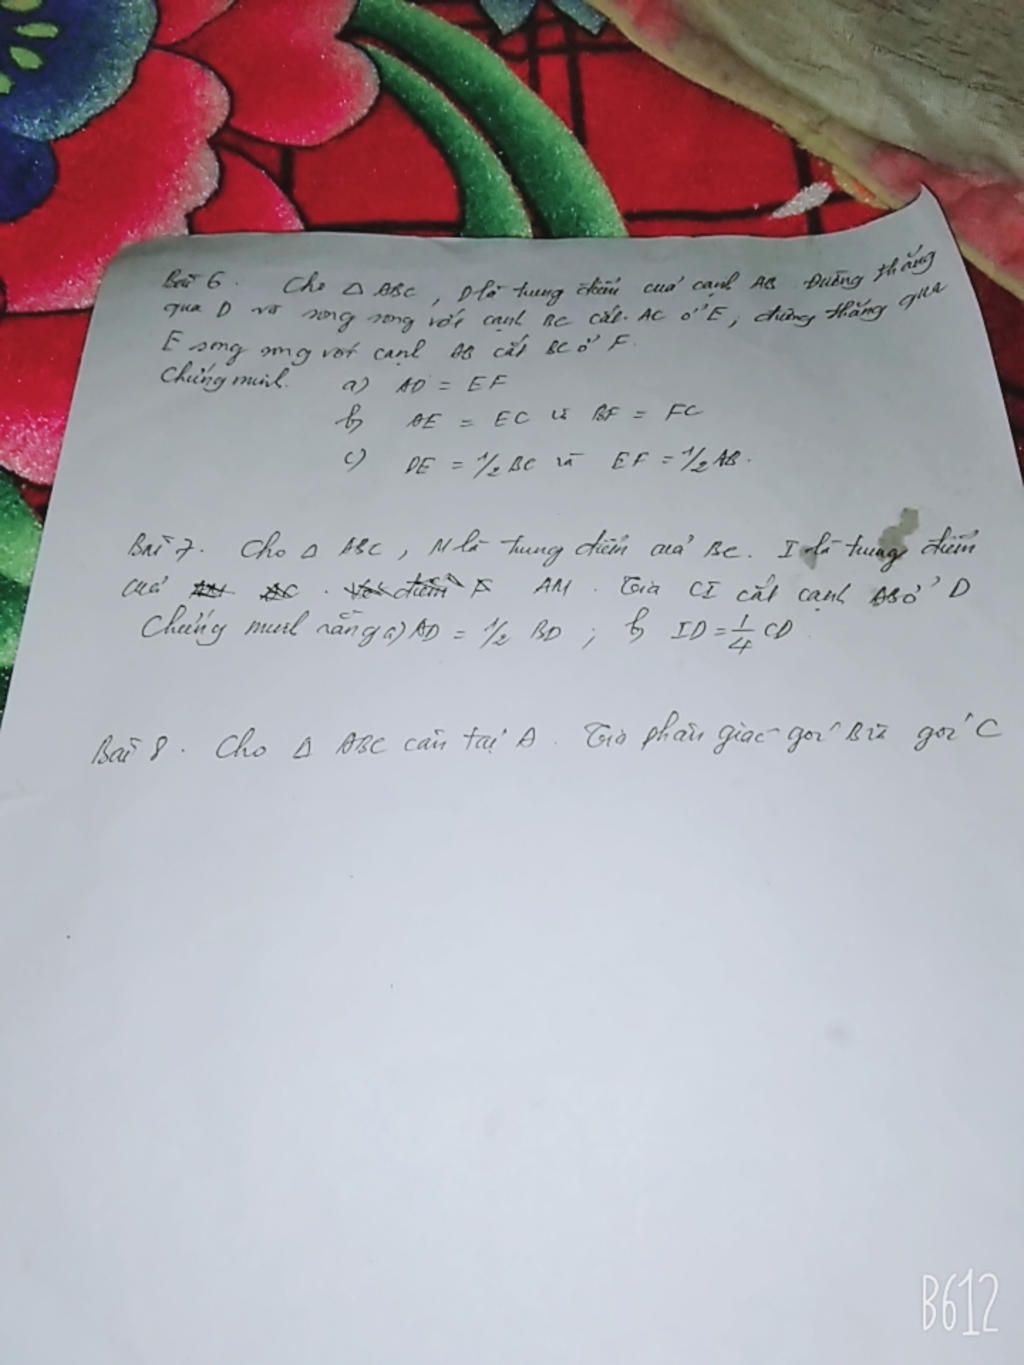 Bài 6. Cho △ ABC, D là trung điểm của cạnh AB Đường thẳng
qua D và song song với cạnh BC cắt AC ở E, đường thẳng qua
E song song với cạnh AB cắt BC ở F.
Chứng minh. a) AD = EF
b) AE = EC và BF = FC
c) DE = 1/2 BC và EF = 1/2 AB.
Bài 7. Cho △ ABC, M là trung điểm của BC. I là trung điểm
của AM. Tia CI cắt cạnh AB ở D
Chứng minh rằng a) AD = 1/2 BD ; b) ID = 1/4 CD
Bài 8. Cho △ ABC cân tại A. Tia phân giác góc B và góc C
B612